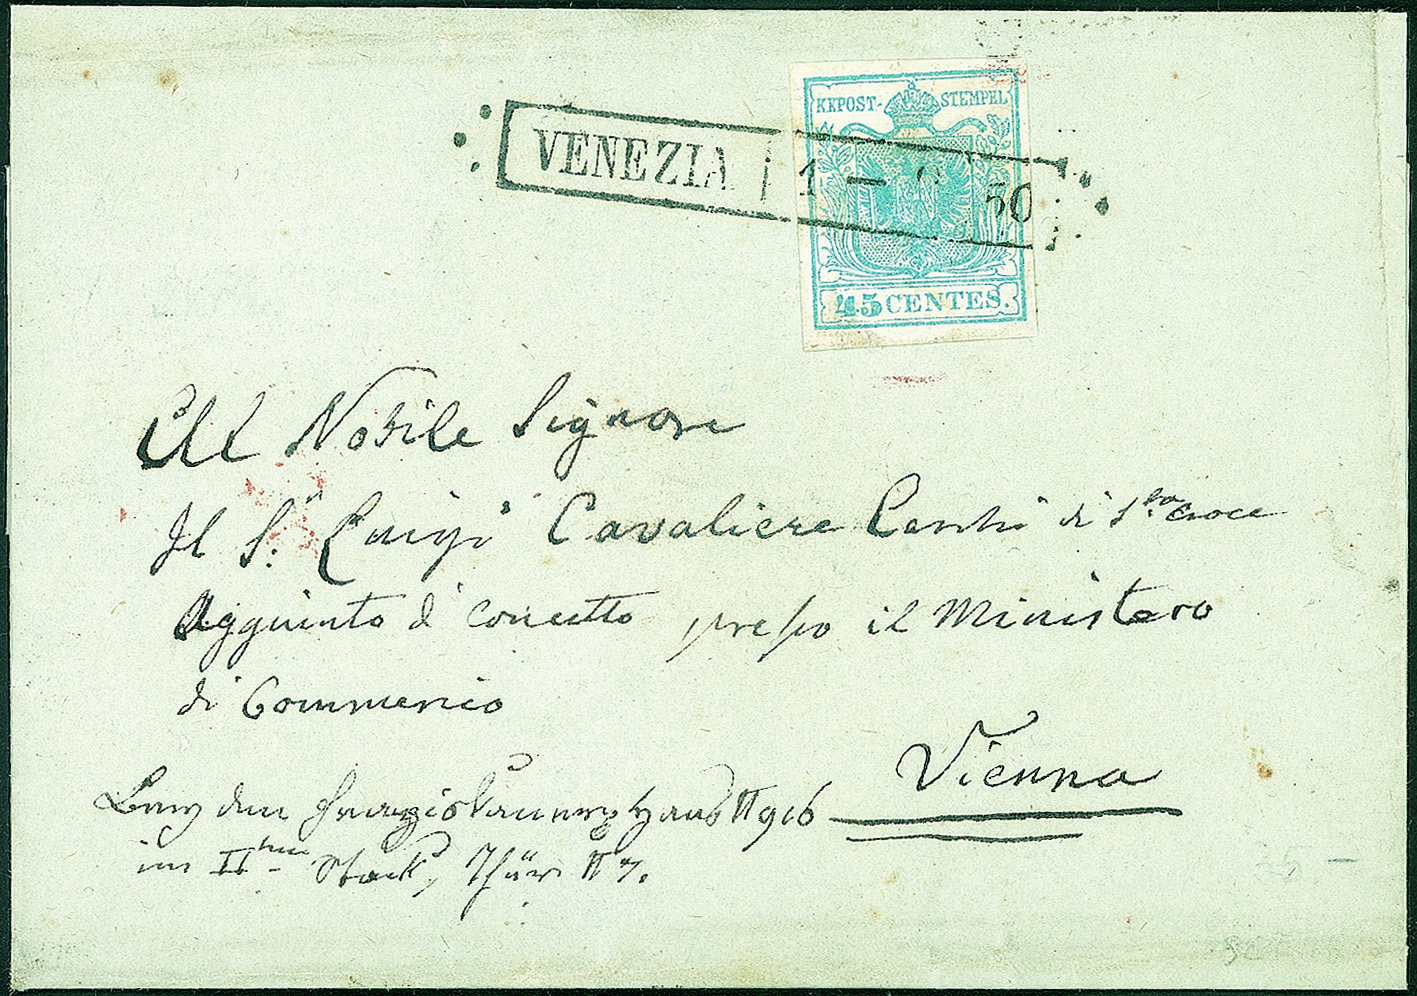 KKPOST-STEMPEL
VENEZIA 1 — 50
45 CENTES.
Al Nobile Signore
Il S.r Luigi Cavaliere di S.ta Croce
Aggiunto di Concetto presso il Ministero
di Commercio
Vienna
Haus N 916
im II ten Stock, Thür N 7.